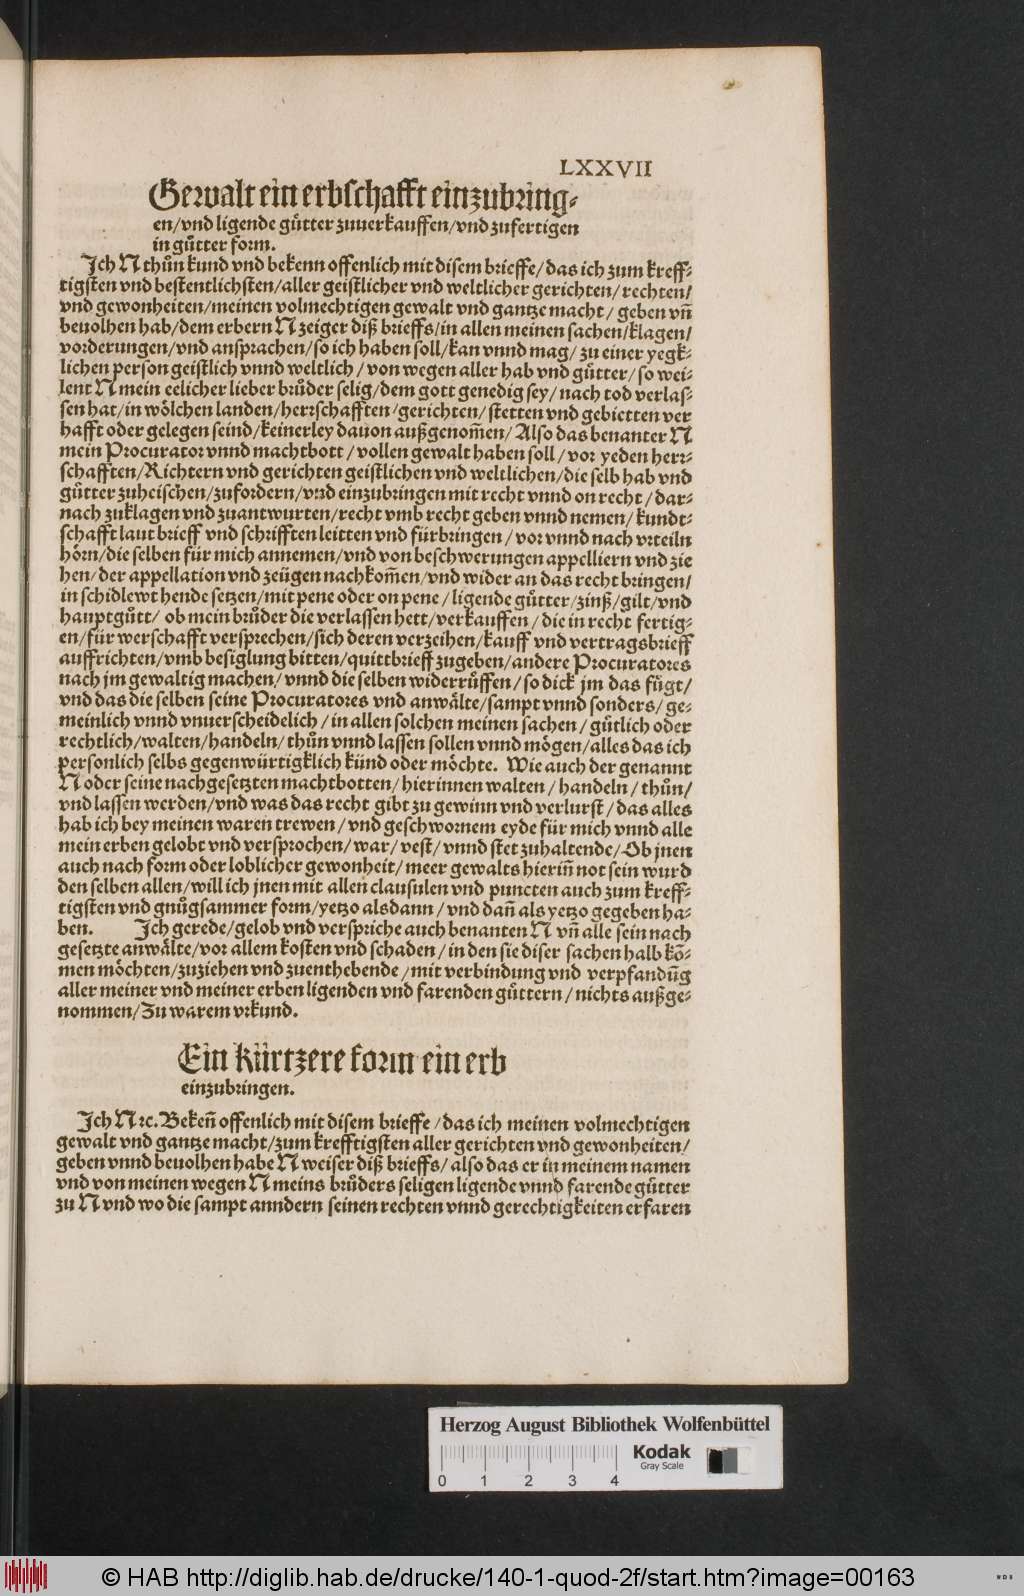 LXXVII
Gewalt ein erbschafft einzubring⸗
en/vnd ligende guͤtter zuuerkauffen/vnd zufertigen
in guͤtter form.
Ich N thuͦn kund vnd bekenn offenlich mit disem brieffe/das ich zum kreff⸗
tigsten vnd bestentlichsten/aller geistlicher vnd weltlicher gerichten/rechten/
vnd gewonheiten/meinen volmechtigen gewalt vnd gantze macht/geben vn̄
beuolhen hab/dem erbern N zeiger diß brieffs/in allen meinen sachen/klagen/
vorderungen/vnd ansprachen/so ich haben soll/kan vnnd mag/zu einer yegk⸗
lichen person geistlich vnnd weltlich/von wegen aller hab vnd guͤtter/so wei⸗
lent N mein eelicher lieber bruͦder selig/dem gott genedig sey/nach tod verlas⸗
sen hat/in woͤlchen landen/herrschafften/gerichten/stetten vnd gebietten ver
hafft oder gelegen seind/keinerley dauon außgenom̄en/Also das benanter N
mein Procurator vnnd machtbott/vollen gewalt haben soll/vor yeden herr⸗
schafften/Richtern vnd gerichten geistlichen vnd weltlichen/die selb hab vnd
guͤtter zuheischen/zufordern/vnd einzubringen mit recht vnnd on recht/dar⸗
nach zuklagen vnd zuantwurten/recht vmb recht geben vnnd nemen/kundt⸗
schafft laut brieff vnd schrifften leitten vnd fürbringen/vor vnnd nach vrteiln
hoͤrn/die selben für mich annemen/vnd von beschwerungen appelliern vnd zie
hen/der appellation vnd zeügen nachkom̄en/vnd wider an das recht bringen/
in schidlewt hende setzen/mit pene oder on pene/ligende guͤtter/zinß/gilt/vnd
hauptguͤtt/ob mein bruͦder die verlassen hett/verkauffen/die in recht fertig⸗
en/für werschafft versprechen/sich deren verzeihen/kauff vnd vertragsbrieff
auffrichten/vmb besiglung bitten/quittbrieff zugeben/andere Procuratores
nach jm gewaltig machen/vnnd die selben widerruͤffen/so dick jm das fügt/
vnd das die selben seine Procuratores vnd anwaͤlte/sampt vnnd sonders/ge⸗
meinlich vnnd vnuerscheidelich/in allen solchen meinen sachen/guͤtlich oder
rechtlich/walten/handeln/thuͦn vnnd lassen sollen vnnd moͤgen/alles das ich
personlich selbs gegenwürtigklich künd oder moͤchte. Wie auch der genannt
N oder seine nachgesetzten machtbotten/hierinnen walten/handeln/thuͦn/
vnd lassen werden/vnd was das recht gibt zu gewinn vnd verlurst/das alles
hab ich bey meinen waren trewen/vnd geschwornem eyde für mich vnnd alle
mein erben gelobt vnd versprochen/war/vest/vnnd stet zuhaltende/Ob jnen
auch nach form oder loblicher gewonheit/meer gewalts hierin̄ not sein wurd
den selben allen/will ich jnen mit allen clausulen vnd puncten auch zum kreff⸗
tigsten vnd gnuͦgsammer form/yetzo alsdann/vnd dan̄ als yetzo gegeben ha⸗
ben. Ich gerede/gelob vnd verspriche auch benanten N vn̄ alle sein nach
gesetzte anwaͤlte/vor allem kosten vnd schaden/in den sie diser sachen halb kō⸗
men moͤchten/zuziehen vnd zuenthebende/mit verbindung vnd verpfandūg
aller meiner vnd meiner erben ligenden vnd farenden guͤttern/nichts außge⸗
nommen/Zu warem vrkund.
Ein kürtzere form ein erb
einzubringen.
Ich N ꝛc. Beken̄ offenlich mit disem brieffe/das ich meinen volmechtigen
gewalt vnd gantze macht/zum krefftigsten aller gerichten vnd gewonheiten/
geben vnnd beuolhen habe N weiser diß brieffs/also das er in meinem namen
vnd von meinen wegen N meins bruͦders seligen ligende vnnd farende guͤtter
zu N vnd wo die sampt anndern seinen rechten vnnd gerechtigkeiten erfaren
Herzog August Bibliothek Wolfenbüttel
Kodak
Gray Scale
0 1 2 3 4
© HAB http://diglib.hab.de/drucke/140-1-quod-2f/start.htm?image=00163